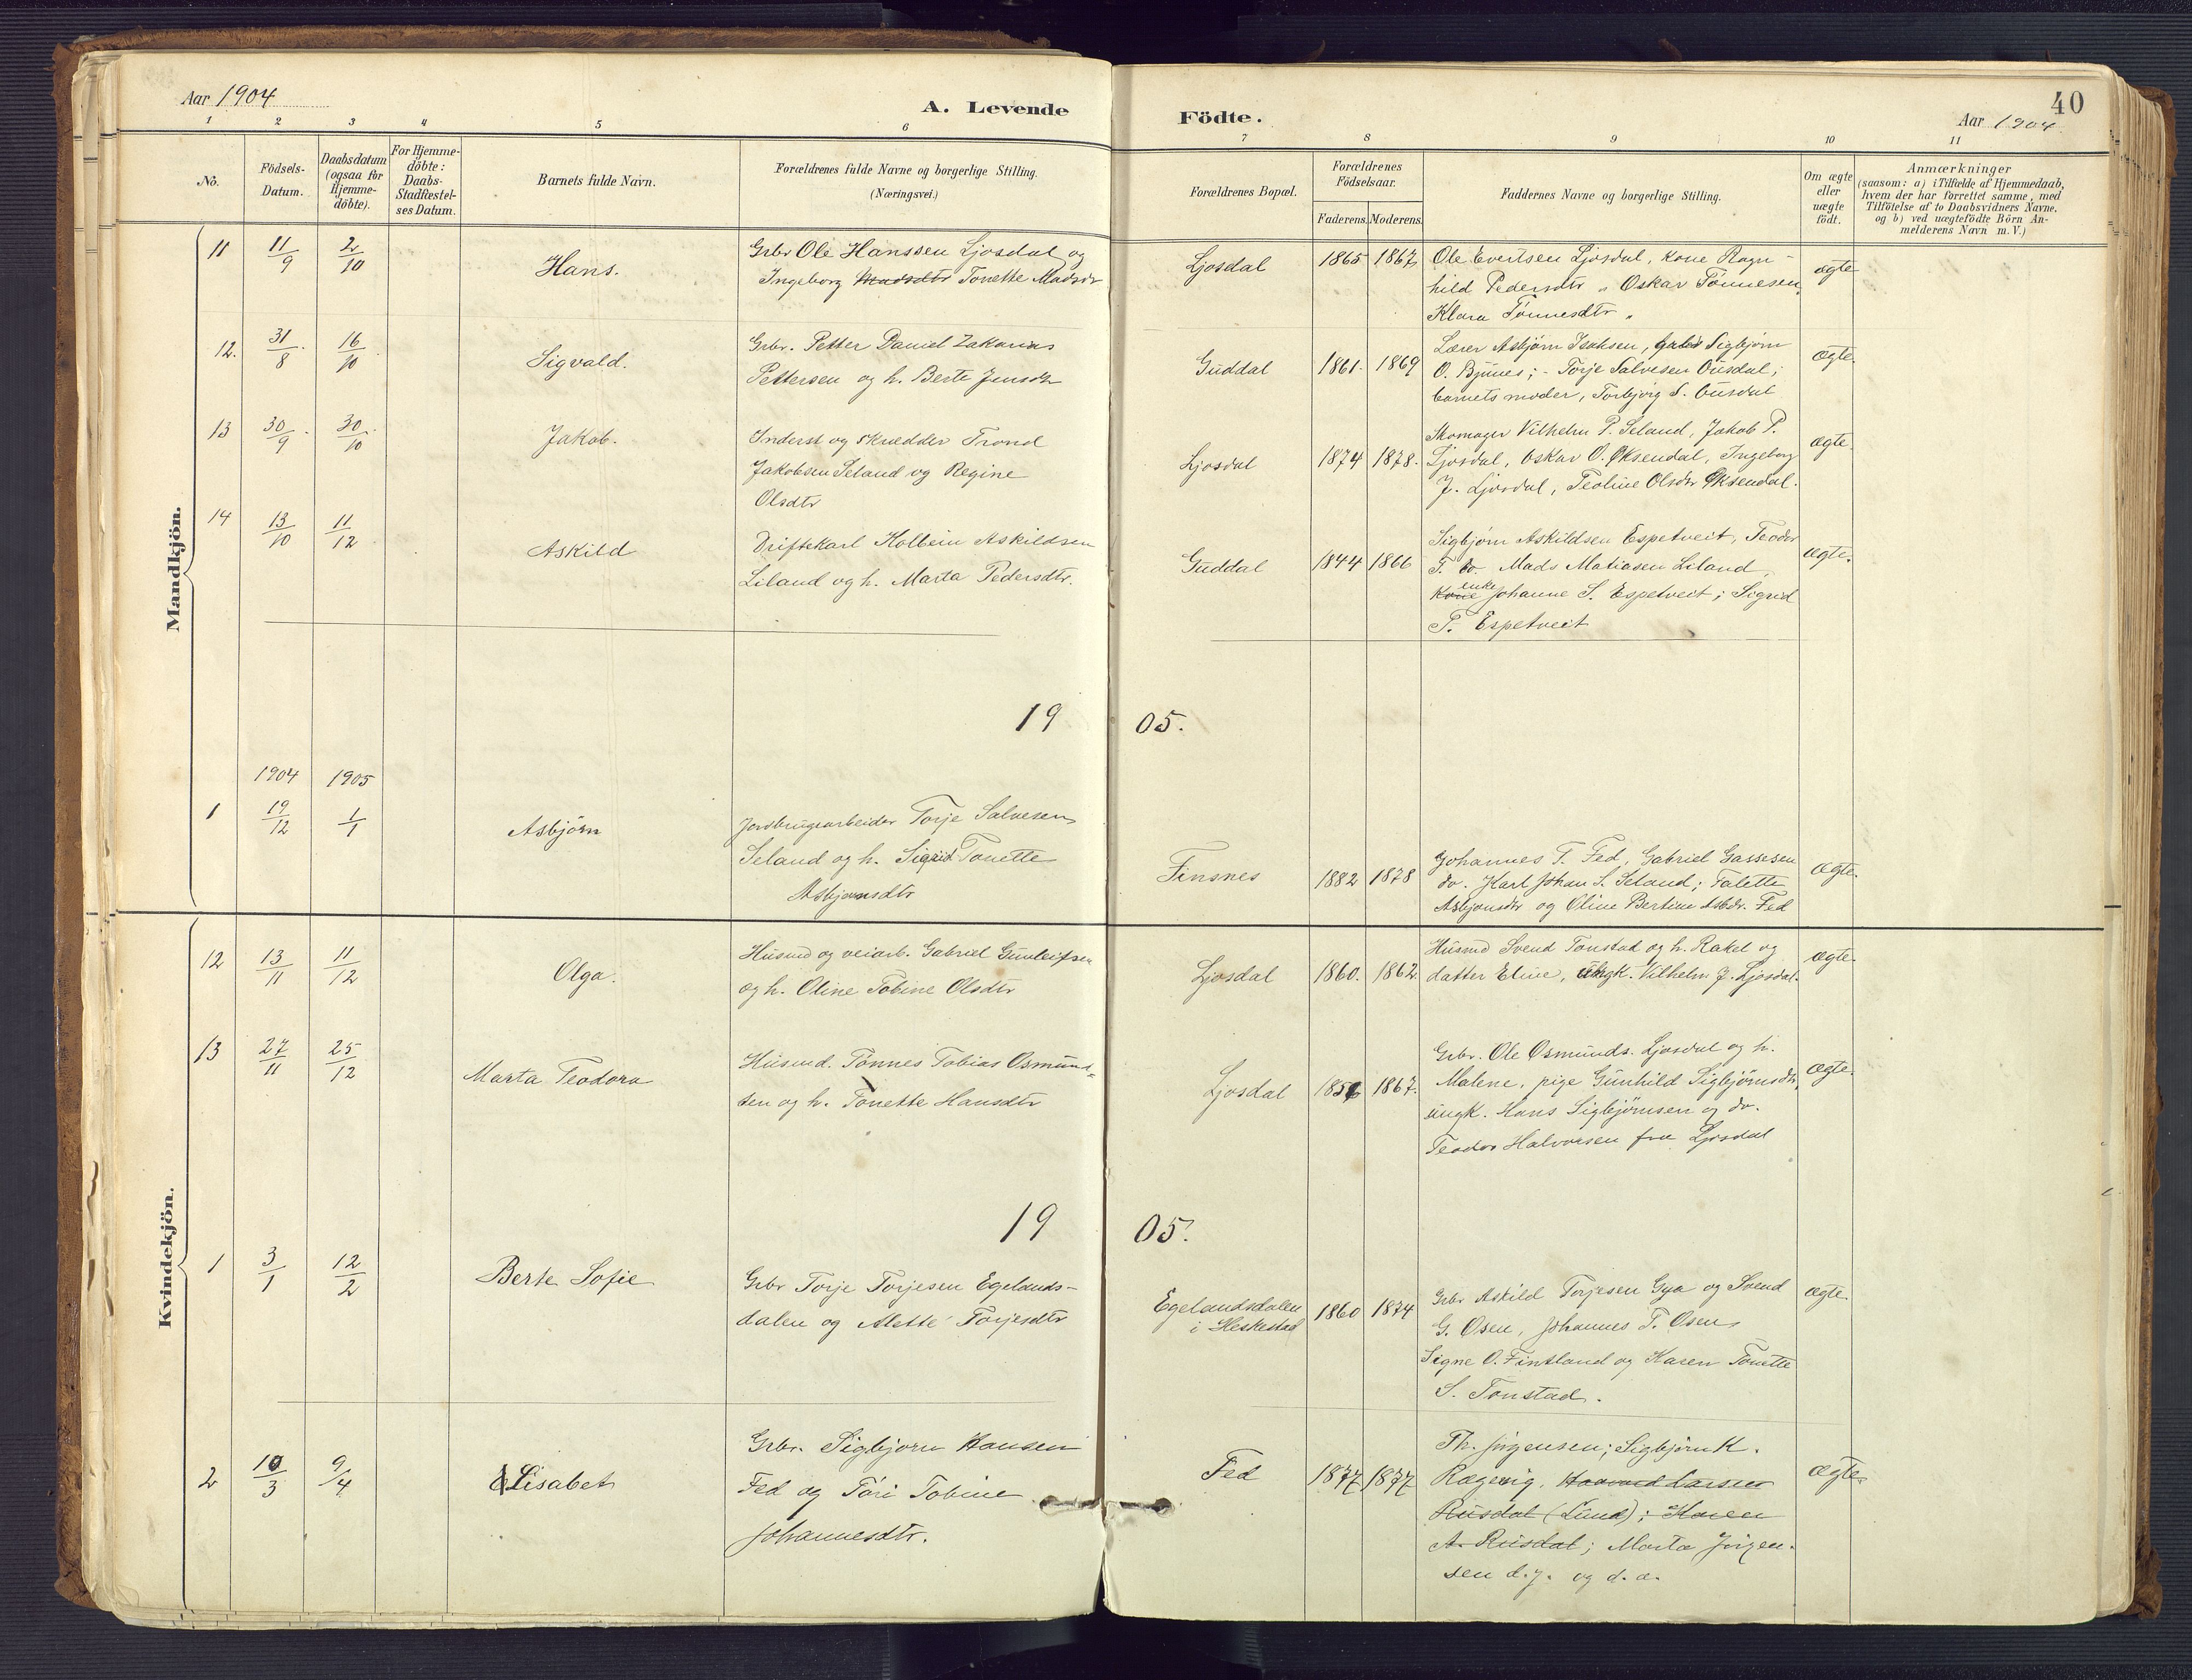 Aar 1904
A. Levende
Födte.
Aar 1904
40
1 2 3 4 5 6 7 8 9 10 11
No.
Födsels-
Datum.
Daabsdatum
(ogsaa for
Hjemme-
döbte).
For Hjemme-
döbte:
Daabs-
Stadfæstel-
ses Datum.
Barnets fulde Navn.
Forældrenes fulde Navne og borgerlige Stilling.
(Næringsvei.)
Forældrenes Bopæl.
Forældrenes
Födselsaar.
Faderens. Moderens.
Faddernes Navne og borgerlige Stilling.
Om ægte
eller
uægte
födt.
Anmærkninger
(saasom: a) i Tilfælde af Hjemmedaab,
hvem der har forrettet samme, med
Tilföielse af to Daabsvidners Navne,
og b) ved uægtefödte Börn An-
melderens Navn m. V.)
Mandkjön.
11 11/9 2/10 Hans.
Grbr Ole Hanssen Ljosdal og
Ingeborg Madsdtr Tonette Madsdr
Ljosdal 1865 1867
Ole Evertsen Ljosdal, kone Ragn-
hild Pedersdtr " Oskar Tönnesen,
Klara Tönnesdtr "
ægte
12. 31/8 16/10 Sigvald.
Grbr. Petter Daniel Zakarias
Pettersen og h. Berte Jensdtr
Guddal 1861. 1869
Lærer Asbjörn Isaksen, Sigbjörn
O. Bjunes; - Torje Salvesen Ousdal;
barnets moder, Torbjörg S. Ousdal
ægte.
13 30/9 30/10 Jakob.
Inderst og skrædder Trond
Jakobsen Seland og Regine
Olsdtr
Ljosdal 1874 1878.
Skomager Vilhelm P. Seland, Jakob P.
Ljosdal, Oskar O. Øksendal, Ingeborg
J. Ljosdal, Teoline Olsdtr Øksendal.
ægte.
14 13/10 11/12 Askild
Driftekarl Kolbein Askildsen
Liland og h. Marta Pedersdtr.
Guddal 1844 1866
Sigbjörn Askildsen Espetveit, Teodor
T. do. Mads Matiasen Liland,
Kone enke Johanne S. Espetveit; Sigrid
P. Espetveit
ægte.
19 05.
1904 1905
1 19/12 1/1 Asbjörn
Jordbrugsarbeider Torje Salvesen
Seland og h. Sigrid Tonette
Asbjörnsdtr
Finsnes 1882 1878
Johannes T. Fed, Gabriel Gassesen
do. Karl Johan S. Seland; Talette
Asbjönsdtr og Oline Bertine Asbdr. Fed
ægte.
Kvindekjön.
12 13/11 11/12 Olga.
Husmd og veiarb. Gabriel Gunleifsen
og h. Oline Tobine Olsdtr
Ljosdal 1860. 1862
Husmd Svend Tonstad og h. Rakel og
datter Eline, ungk. Vilhelm J. Ljosdal.
ægte.
13 27/11 25/12 Marta Teodora
Husmd. Tönnes Tobias Osmund-
sen og h. Tonette Hansdtr
Ljosdal 1867.
Grbr. Ole Osmunds. Ljosdal og h.
Malene, pige Gunhild Sigbjörnsdtr,
ungk. Hans Sigbjörnsen og do.
Teodor Halvorsen fra Ljosdal
ægte.
19 05.
1 3/1 12/2 Berte Sofie
Grbr Torje Torjesen Egelands-
dalen og Alette Torjesdtr
Egelandsdalen
i Heskestad
1860 1874
Grbr Askild Torjesen Gya og Svend
G. Osen, Johannes T. Osen,
Signe O. Fintland og Karen Tonette
S. Tonstad.
ægte.
2 10/3 9/4 Elisabet
Grbr. Sigbjorn Hansen
Fed og Töri Tobine
Johannesdtr.
Fed 1877 1877
Th. Jörgensen; Sigbjörn K.
Rægevig, Haavard Larsen
Rusdal (Lund); Karen
A. Rusdal; Marta Jörgen-
sen d.y. og d.æ.
ægte.